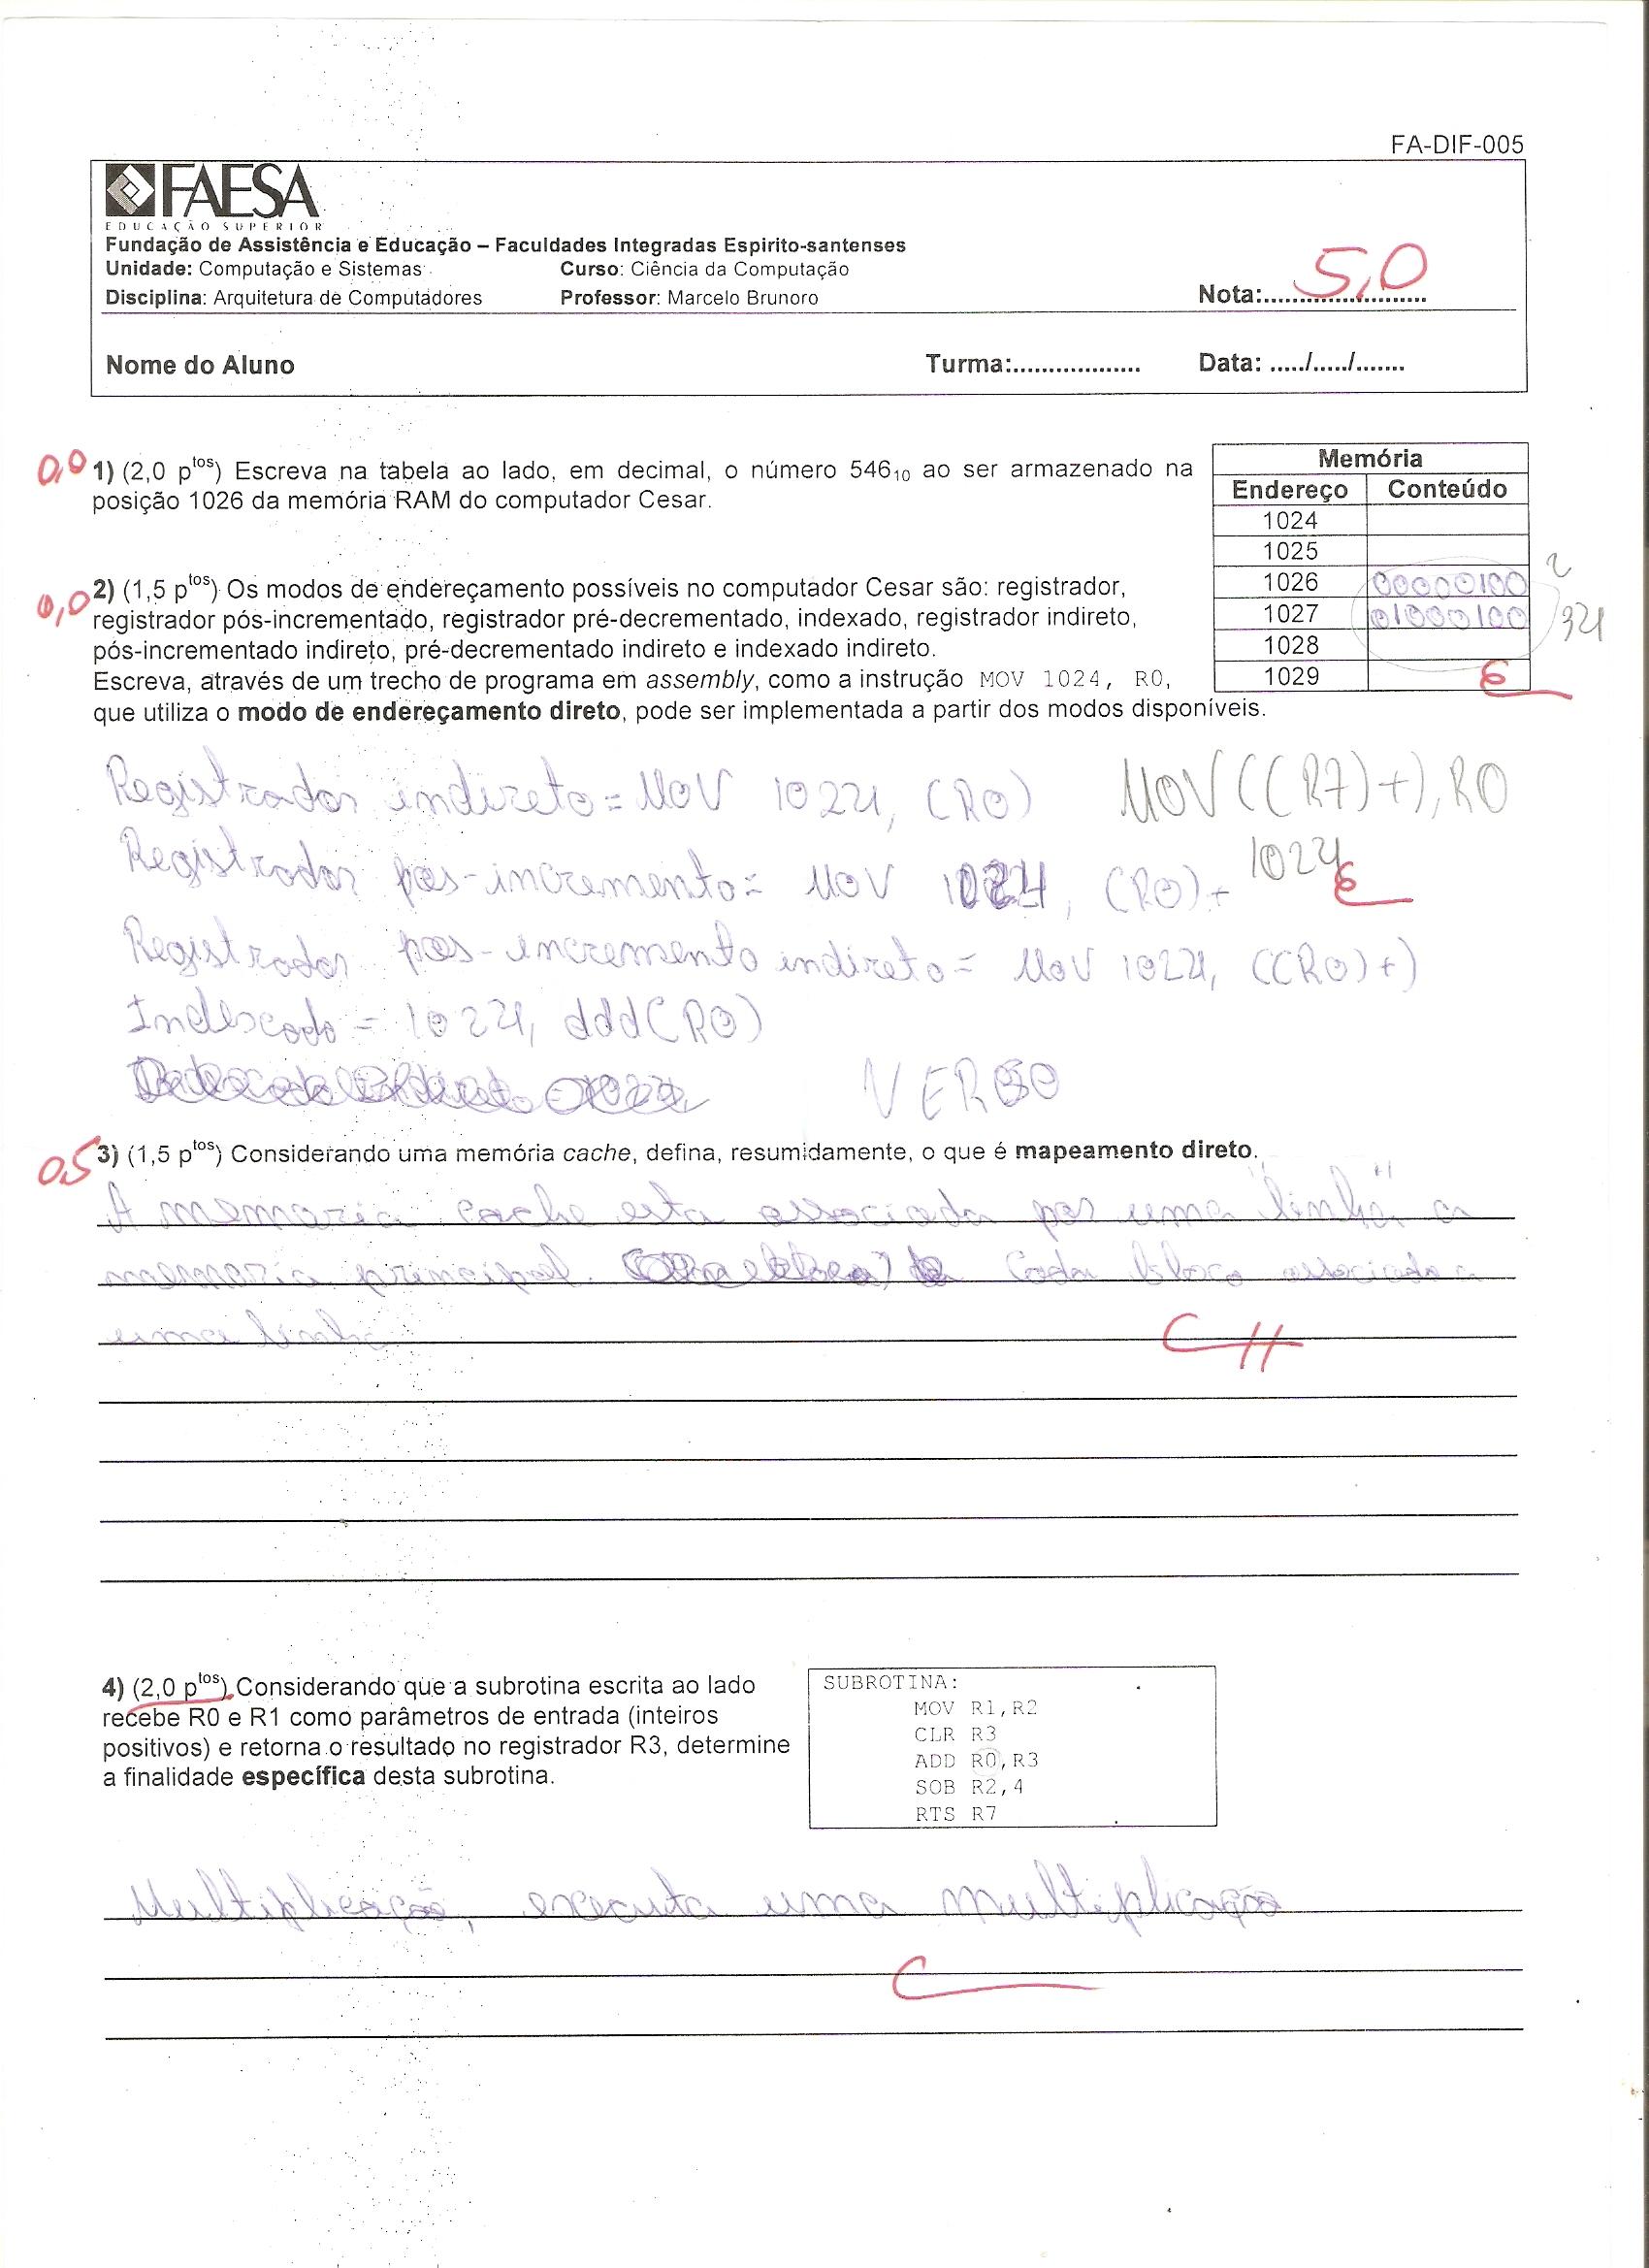 FA-DIF-005
FAESA
EDUCAÇÃO SUPERIOR
Fundação de Assistência e Educação – Faculdades Integradas Espirito-santenses
Unidade: Computação e Sistemas Curso: Ciência da Computação
Disciplina: Arquitetura de Computadores Professor: Marcelo Brunoro Nota:........................ 5,0
Nome do Aluno Turma:.................. Data: ...../...../.......
0,0 1) (2,0 ptos) Escreva na tabela ao lado, em decimal, o número 546₁₀ ao ser armazenado na
posição 1026 da memória RAM do computador Cesar.
Memória
Endereço Conteúdo
1024
1025
1026 00000100 2
1027 01000100 34
1028
1029
0,0 2) (1,5 ptos) Os modos de endereçamento possíveis no computador Cesar são: registrador,
registrador pós-incrementado, registrador pré-decrementado, indexado, registrador indireto,
pós-incrementado indireto, pré-decrementado indireto e indexado indireto.
Escreva, através de um trecho de programa em assembly, como a instrução MOV 1024, R0,
que utiliza o modo de endereçamento direto, pode ser implementada a partir dos modos disponíveis.
Registrador indireto = MOV 1024, (R0) MOV ((R7)+), R0
Registrador pos-incremento = MOV 1024, (R0)+ 1024
Registrador pos-incremento indireto = MOV 1024, ((R0)+)
Indescado = 1024, ddd(R0)
VERSO
0,5 3) (1,5 ptos) Considerando uma memória cache, defina, resumidamente, o que é mapeamento direto.
A memoria cache esta associada por uma "linha" a
memoria principal. Cada bloco associado a
uma linha
C //
4) (2,0 ptos) Considerando que a subrotina escrita ao lado
recebe R0 e R1 como parâmetros de entrada (inteiros
positivos) e retorna o resultado no registrador R3, determine
a finalidade específica desta subrotina.
SUBROTINA:
MOV R1,R2
CLR R3
ADD R0,R3
SOB R2,4
RTS R7
Multiplicação, executa uma multiplicação
C